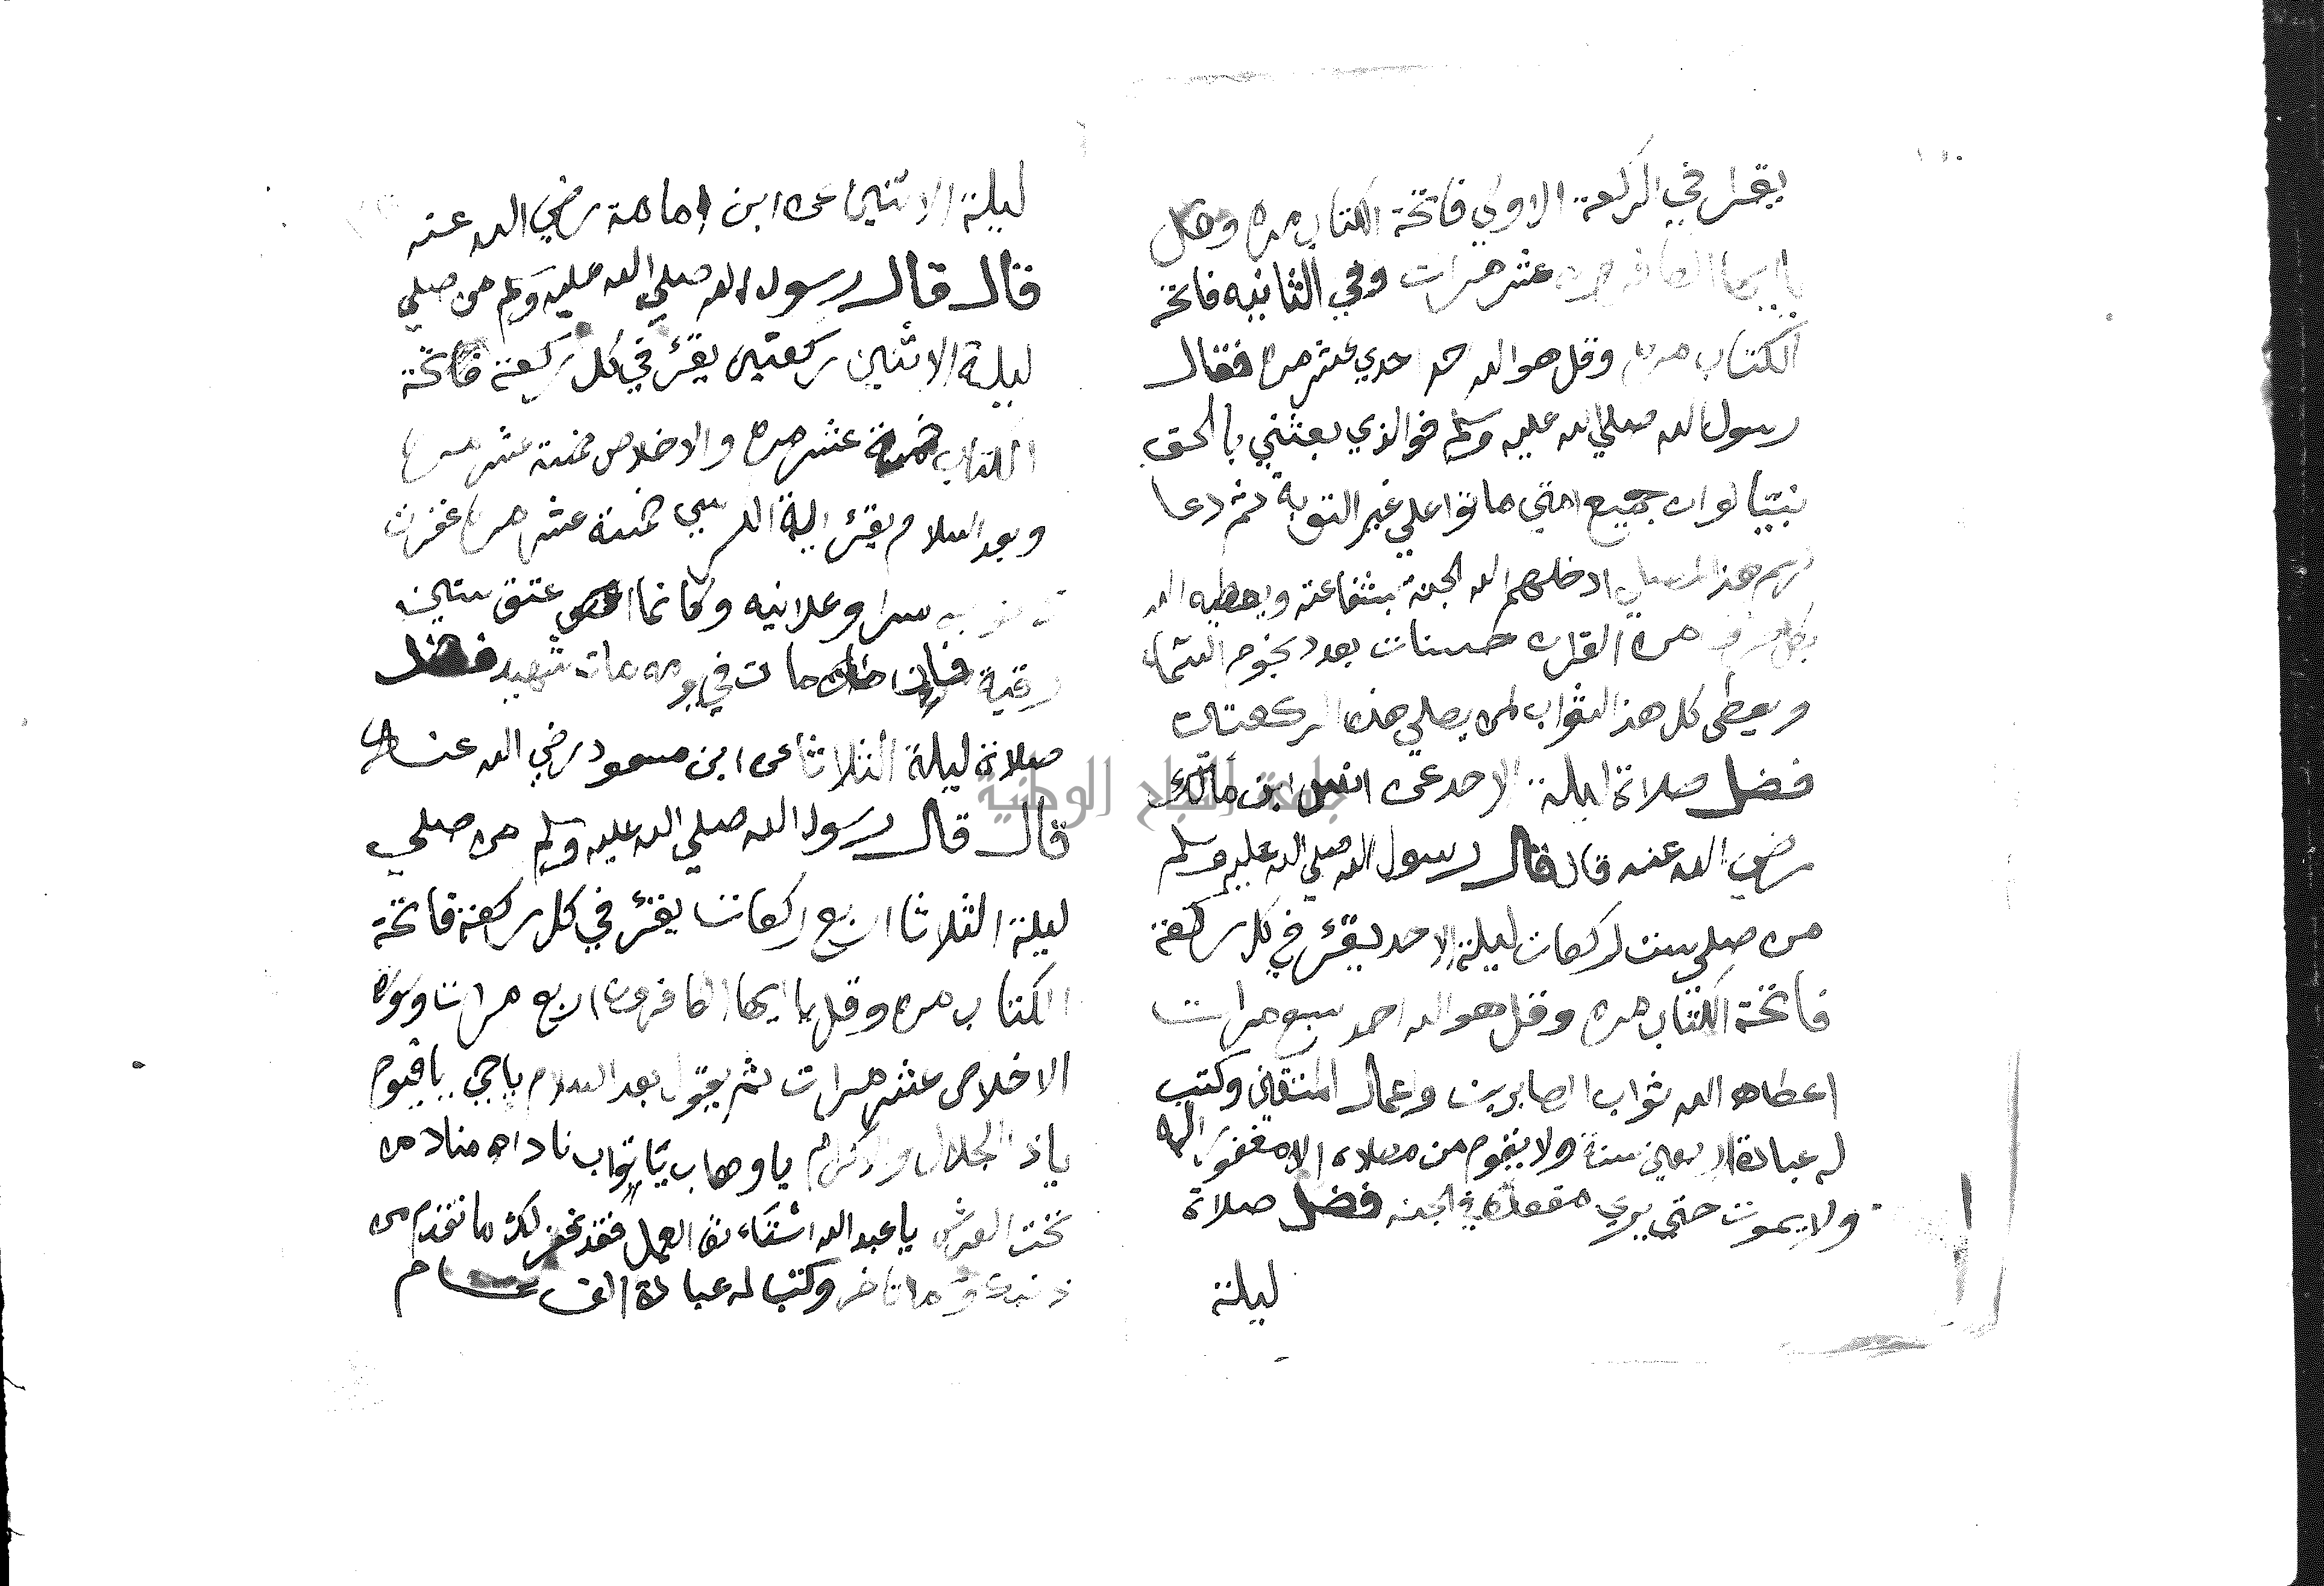 يقرا في الركعة الاولي فاتحة الكتاب مره وقل
يا ايها الكافرون عشر مرات وفي الثانيه فاتحة
الكتاب مره وقل هو الله احد احدي عشر مره فقال
رسول الله صلي الله عليه وسلم فوالذي بعثني بالحق
نبيا لو ان جميع امتي ماتوا علي غير التوبة ثم دعا
لهم هذا المصلي ادخلهم الله الجنة بشفاعته ويعطيه الله
بكل حرف من القران حسنات بعدد نجوم السماء
ويعطى كل هذا الثواب لمن يصلي هذه الركعتان
فضل صلاة ليلة الاحد عن انس ابن مالك
رضي الله عنه قال قال رسول الله صلي الله عليه وسلم
من صلي ست ركعات ليلة الاحد يقرٔ في كل ركعة
فاتحة الكتاب مره وقل هو الله احد سبع مرات
اعطاه الله ثواب الصابرين واعمال المتقين وكتب
له عبادة اربعين سنة ولا يقوم من مصلاه الا مغفورا له
ولا يموت حتي يري مقعده في الجنه فضل صلاة
ليلة
ليلة الاثنين عن ابن امامة رضي الله عنه
قال قال رسول الله صلي الله عليه وسلم من صلي
ليلة الاثنين ركعتين يقرٔ في كل ركعة فاتحة
الكتاب خمسة عشر مره والاخلاص خمسة عشر مره
وبعد السلام يقرٔ اية الكرسي خمسة عشر مره غفرت
ذنوبه سرا وعلانيه وكانما عتق ستين
رقبة فان مات في يومه مات شهيد فضل
صلاة ليلة الثلاثا عن ابن مسعود رضي الله عنه
قال قال رسول الله صلي الله عليه وسلم من صلي
ليلة الثلاثا اربع ركعات يقرٔ في كل ركعة فاتحة
الكتاب مره وقل يا ايها الكافرون اربع مرات وسورة
الاخلاص عشر مرات ثم يقول بعد السلام يا حي يا قيوم
يا ذا الجلال والاكرام يا وهاب يا تواب ناداه مناد من
تحت العرش يا عبد الله استانف العمل فقد غفر لك ما تقدم من
ذنبك وما تاخر وكتب له عبادة الف عام
جامعة النجاح الوطنية